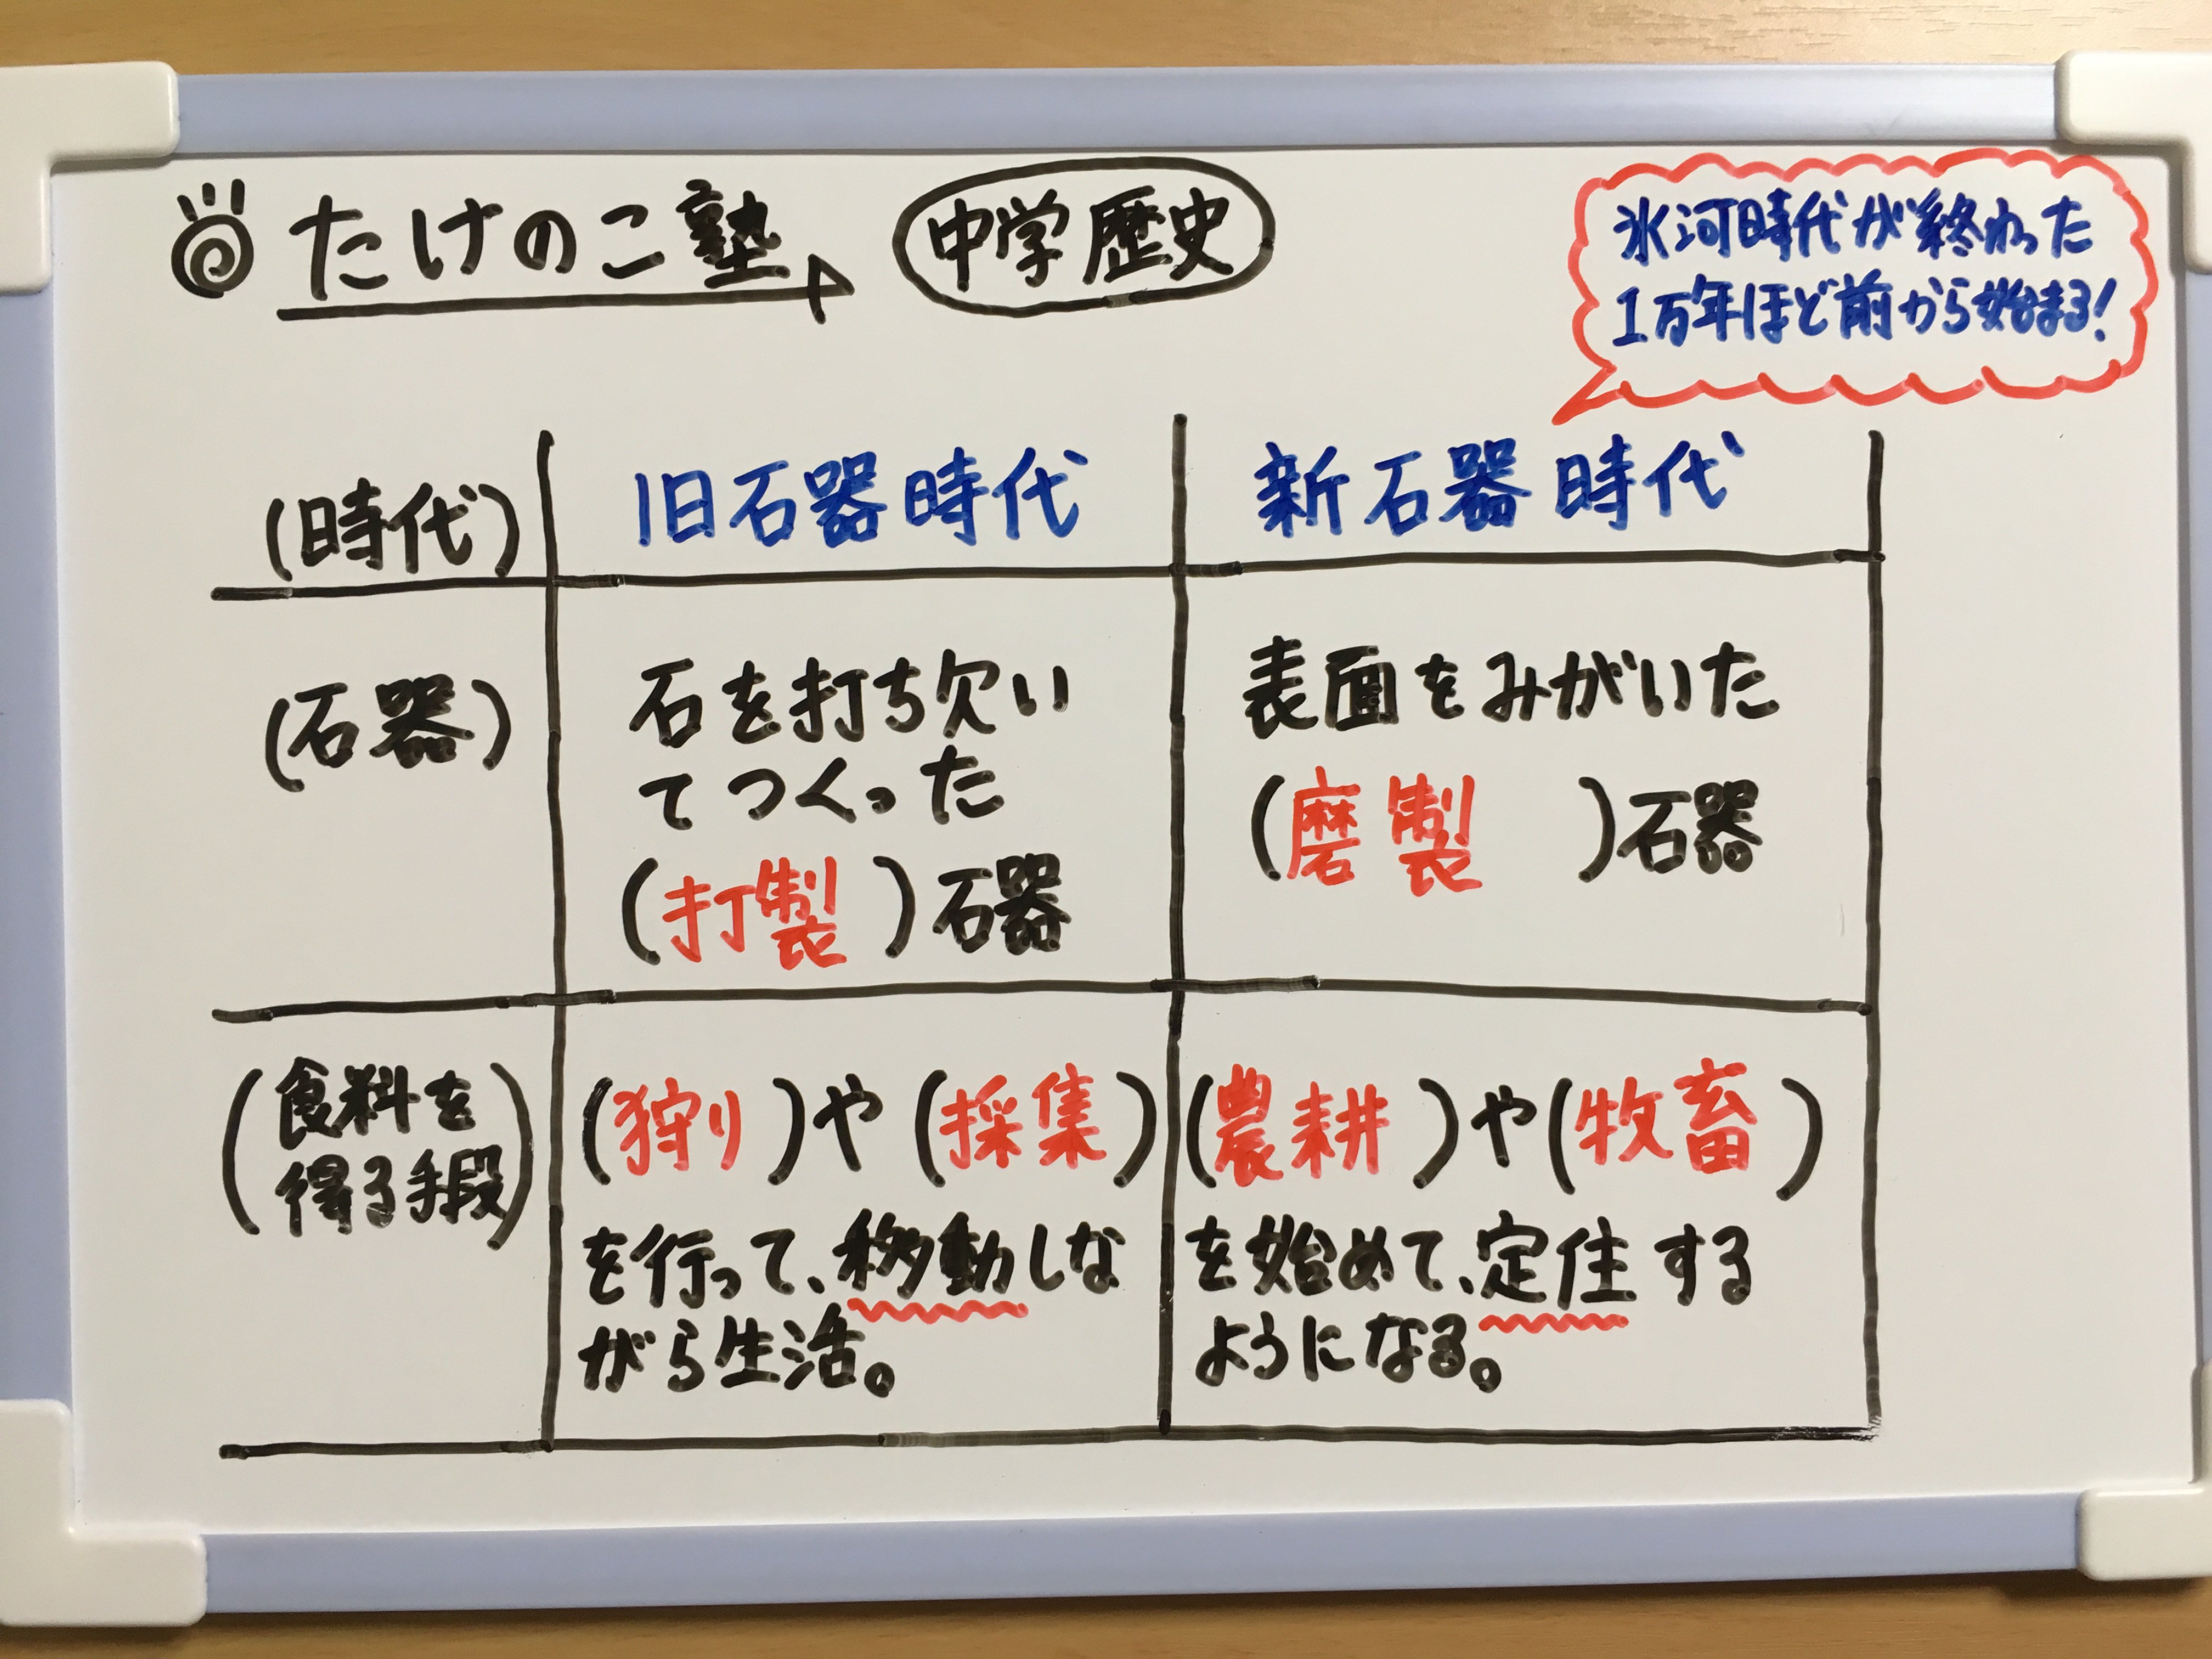 たけのこ塾
中学歴史
氷河時代が終わった
1万年ほど前から始まる!
(時代)
旧石器時代
新石器時代
(石器)
石を打ち欠い
てつくった
(打製)石器
表面をみがいた
(磨製)石器
(食料を
得る手段)
(狩り)や(採集)
を行って、移動しな
がら生活。
(農耕)や(牧畜)
を始めて、定住する
ようになる。